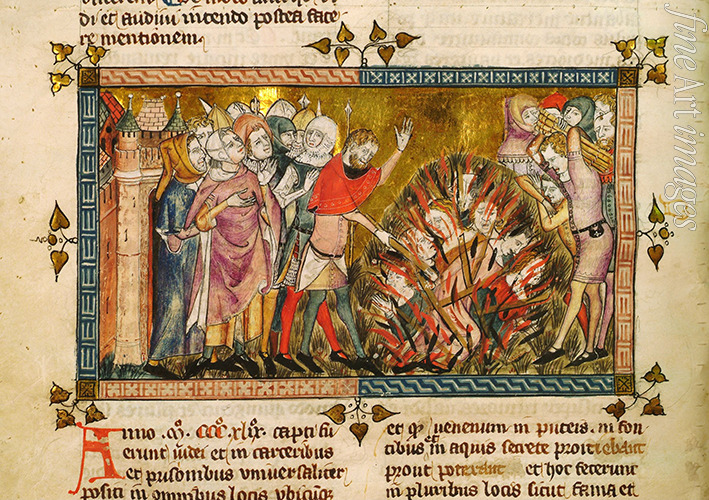 di et audiui intendo postea face
re mentionem.
Anno .M. CCC. xlix. capti fu
erunt iudei et in carceribus
et prisonibus vniuersaliter
positi in omnibus locis vbicūq;
et q venenum in puteis. in fon
tibus et in aquis secrete proitiebant
prout poterant et hoc fecerunt
in pluribus locis sicut fama et
fine art images